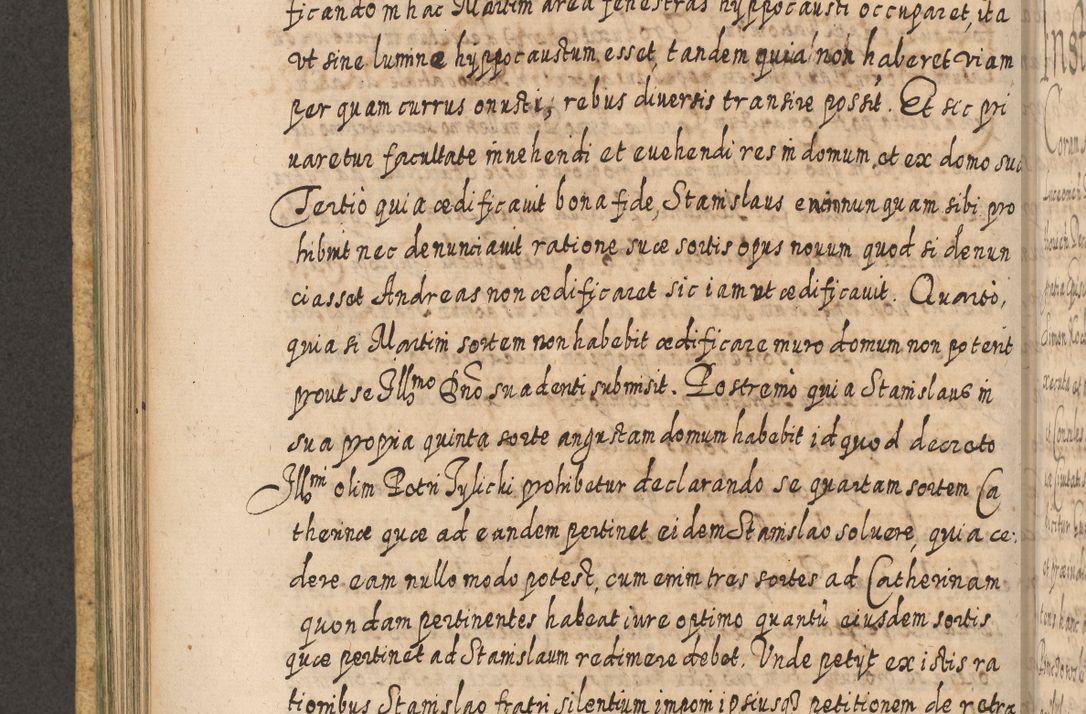 ficando in hac Martini area fenestras hyppocausti occuparet, ita
ut sine lumine hyppocaustum esset, tandem quia non haberet viam
per quam currus onusti, rebus diversis transire possit. Et sic pri
uaretur facultate innehendi et euehendi res in domum, et ex domo sua
Tertiò quia ædificauit bona fide, Stanislaus enim nunquam sibi pro
hibuit nec denunciauit ratione suæ sortis opus nouum quod si denun
ciasset Andreas non ædificaret sic iam ut ædificauit. Quartò,
quia si Martini sortem non habebit ædificare muro domum non poterit
prout se Illmo Dno suadenti submisit. Postremò quia Stanislaus in
sua propria quinta sorte angustam domum habebit id quod decreto
Illmi olim Petri Tylicki prohibetur declarando se quartam sortem Ca
therinæ quæ ad eandem pertinet eidem Stanislao soluere, quia ce:
dere eam nullo modo potest, cum enim tres sortes ad Catherinam
quondam pertinentes habeat iure optimo quantũ eiusdem sortis
quæ pertinet ad Stanislaum redimere debet. Unde petyt ex istis ra
tionibus Stanislao fratri silentium imponi ipsiusq petitionem de retra